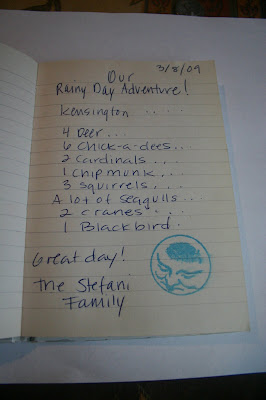 3/8/09
Our
Rainy Day Adventure!
Kensington ....
4 Deer...
6 Chick-a-dees..
2 Cardinals...
1 Chipmunk...
3 Squirrels...
A lot of seagulls...
2 cranes....
1 Blackbird.
Great day!
The Stefani
Family